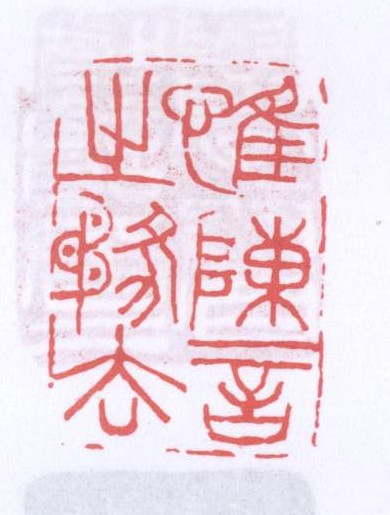 惟陳言
之務去